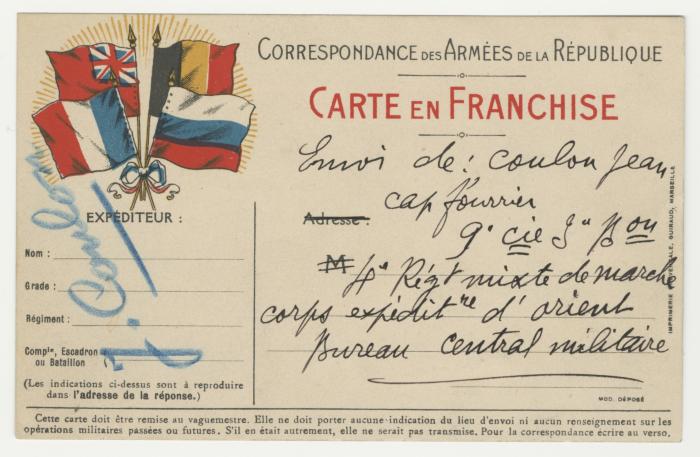 CORRESPONDANCE DES ARMÉES DE LA RÉPUBLIQUE
CARTE EN FRANCHISE
Envoi de : Coulon Jean
cap fourrier
Adresse :
9e cie 3e Bon
M 4e Régt mixte de marche
corps expéditre d'orient
Bureau central militaire
EXPÉDITEUR :
Nom :
Grade :
Régiment :
Compie, Escadron
ou Bataillon
(Les indications ci-dessus sont à reproduire
dans l'adresse de la réponse.)
J. Coulon
IMPRIMERIE GUIRAUD, MARSEILLE
MOD. DÉPOSÉ
Cette carte doit être remise au vaguemestre. Elle ne doit porter aucune indication du lieu d'envoi ni aucun renseignement sur les
opérations militaires passées ou futures. S'il en était autrement, elle ne serait pas transmise. Pour la correspondance écrire au verso.